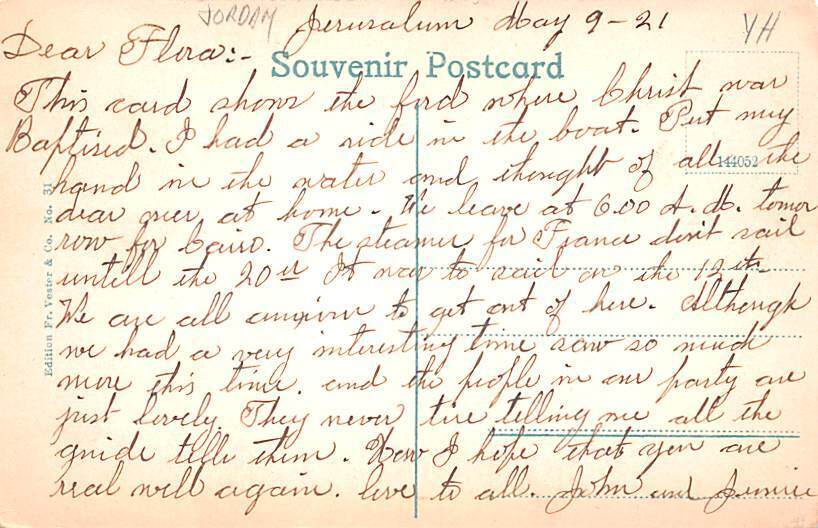 JORDAN
Jerusalum May 9-21
YH
Dear Flora:-
Souvenir Postcard
This card shows the ford where Christ was
Baptised. I had a ride in the boat. Put my
144052
hand in the water and thought of all the
dear ones at home. We leave at 6.00 A.M. tomor
row for Cairo. The steamer for France don't sail
untill the 20th It was to sail on the 12th
We are all anxious to get out of here. Although
we had a very interesting time saw so much
more this time. and the people in our party are
just lovely. They never tire telling me all the
guide tells them. Now I hope that you are
real well again. love to all. John and Jennie
Edition Fr. Vester & Co. No. 31